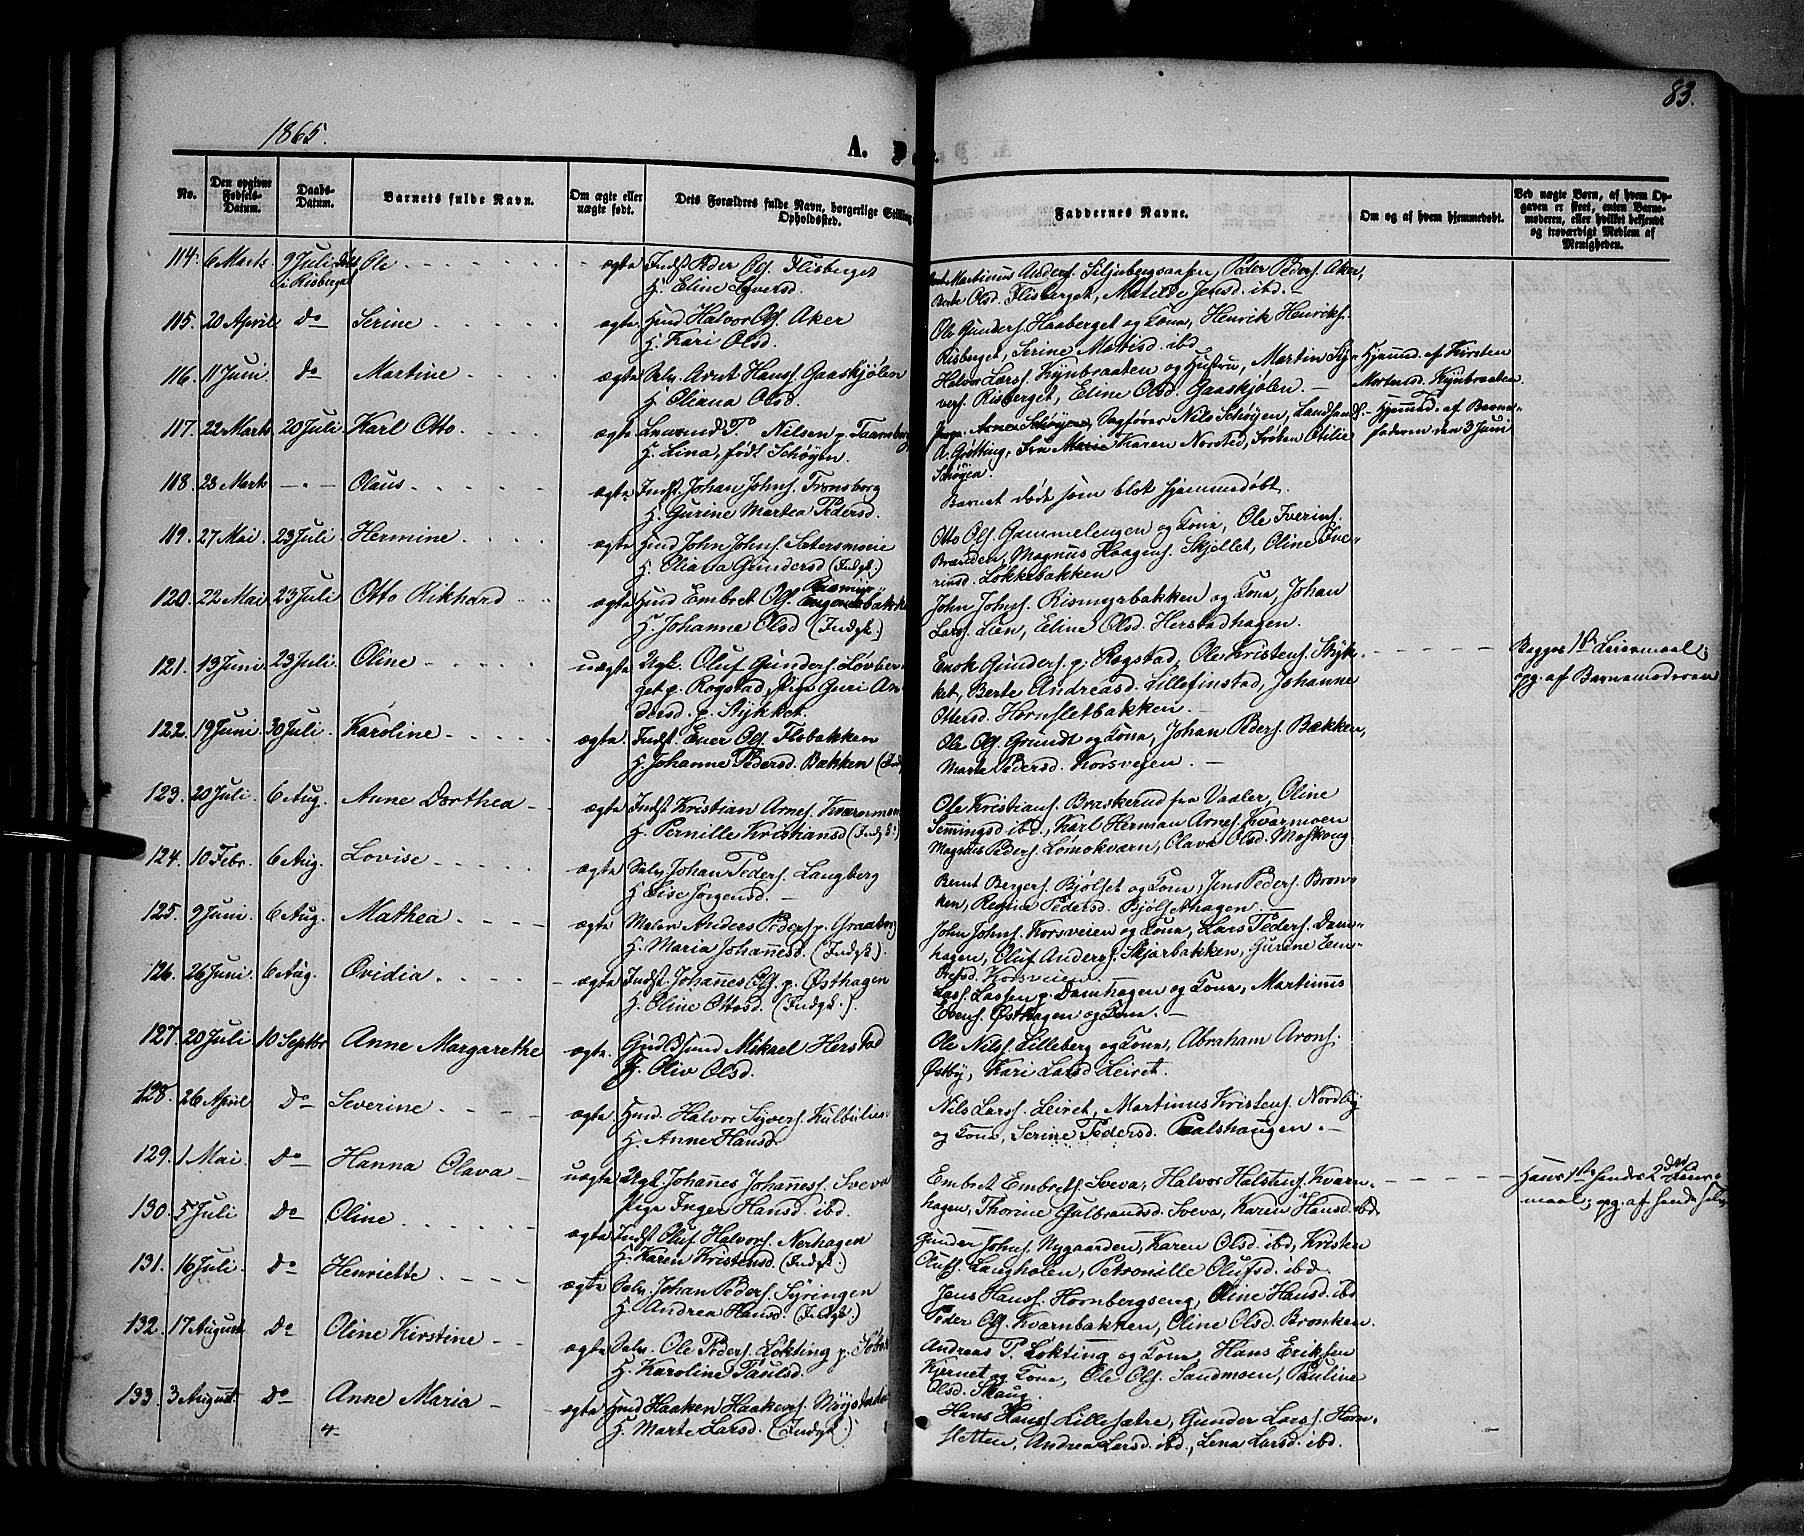 83.
1865.
A.
No.
Den opgivne Fødsels-Datum.
Daabs-Datum.
Barnets fulde Navn.
Om ægte eller uægte født.
Dets Forældres fulde Navn, borgerlige Stilling
Opholdssted.
Faddernes Navne.
Om og af hvem hjemmedøbt.
Ved uægte Børn, af hvem Opgaven er skeet, enten Barnemoderen, eller hvilket bekjendt og troværdigt Medlem af Menigheden.
114. 6 Marts. 9 Juli i Risberget Ole ægte Indst Peder Ols. Flisberget
H. Eline Syversd.
Martinus Anders. Siljubergsaasen, Peder Peders. Aker,
Berte Olsd. Flisberget, Matilde Jensd. ibd.
115. 20 April. do Serine ægte Hmd Halvor Ols. Aker
H. Kari Olsd.
Ole Gunders. Haaberget og Kona, Henrik Henriks.
Risberget, Serine Mathisd. ibd
116. 11 Juni do Martine ægte Selv. Arnt Hanss. Gaaskjølen
H. Oliana Olsd.
Halvor Larss. Kynbraaten og Hustru, Martin Sy-
vers. Risberget, Eline Olsd. Gaaskjølen.
Hjemmd. af Kirsten
Mortensd. Kynbraaten
117. 22 Marts 20 Juli Karl Otto ægte Lensmd P. Nilsen p. Taarnborg
H. Lina, født Schøyen.
Arne Schøyen, Sagfører Nils Schøyen, Landhandl.
A. Grøtting, Fru Karen Norsted, Frøken Otilie
Schøyen.
Hjemmd. af Barne-
faderen den 3 Juni
118. 23 Mark - . - Olaus ægte Indst. Johan Johns. Tronsborg
H. Gurine Martea Pedersd.
Barnet døde som blot hjemmedøbt.
119. 27 Mai. 23 Juli Hermine ægte Hmd John Johns. Sætersmoeie
H. Oliana Gundersd (Indgk.)
Otto Ols Gammelengen og Kona, Ole Iverins.
Brænden, Magnus Haagens. Skjellet, Oline Ive-
rinsd. Løkkebakken
120. 22 Mai 23 Juli Otto Rikhard ægte Hmd Embret Ols.
H. Johanne Olsd (Indgk.)
John Johns. Rismyrbakken og Kona, Johan
Larss. Lien, Eline Olsd. Herstadhagen.
121. 13 Juni 23 Juli. Oline uægte Ugk. Oluf Gunders. Løvber-
get p. Rogstad, Pige Guri An-
dersd. p. Stykket.
Enok Gunders. p. Rogstad, Ole Kristens. Styk-
ket, Berte Andreasd. Lillefinstad, Johanne
Ottersd. Hornsletbakken.
Begges 1ste Leiermaal;
opg. af Barnemoderen
122. 19 Juni 30 Juli. Karoline ægte. Indst. Ener Ols. Flobakken
H. Johanne Pedersd. Bakken
Ole Ols. Grundt og Kona, Johan Peders. Bækken,
Marte Pedersd. Korsveien.
123. 20 Juli 6 Aug. Anne Dorthea ægte Indst Kristian Arnes. Kværnmoen
H. Pernille Kristiansd (Indgk.)
Ole Kristians. Braskerud fra Vaaler, Oline
Semmingsd ibd., Karl Herman Arnes. Kværnmoen
Magnus Peders. Lømokværn, Olava Olsd. Moskoug
124. 10 Febr. 6 Aug. Lovise ægte Selv Johan Peders. Langberg
H. Elise Jørgensd.
Bernt Bergers. Bjølset og Kona, Jens Peders. Bron-
ken, Regine Pedersd. Bjølsethagen
125. 9 Juni 6 Aug. Mathea ægte Maler Anders Peders p. Graaberg
H. Maria Johannesd. (Indgk.)
John Johns. Korsveien og Kona, Lars Peders. Dam-
hagen, Oluf Anders. Skjærbakken, Gurine Em-
bretsd. Korsveien.
126. 26 Juni 6 Aug. Ovidia ægte Indst. Johannes Ols. p. Østhagen
H. Oline Ottosd. (Indgk.).
Lars Larssen p. Damhagen og Kona, Martinus
Evens. Østhagen og Kona.
127. 20 Juli 10 Septbr. Anne Margarethe ægte. Mikael Herstad
H. Oliv Olsd.
Ole Nilss. Lilleberg og Kona, Abraham Arons.
Østby, Kari Larsd. Leiret.
128. 26 April Do Severine ægte Hmd. Halvor Syvers. Kulblik
H. Anne Hansd.
Nils Larss. Leiret, Martinus Kristens. Nordby
og Kona, Serine Pedersd. Palshaugen.
129. 1 Mai. Do Hanna Olava uægte Ugk. Johannes Johanness. Sveva
Pige Inger Hansd. ibd.
Embret Embrets. Sveva, Halvor Halstens. Kværn-
hagen, Thorine Gulbrandsd. Sveva, Karen Hansd. ibd.
Hans 1ste hendes 2det Leier-
maal; opg. af hende selv
130. 5 Juli Do Oline ægte Indst Oluf Halvors. Nerhagen
H. Karen Kristensd. (Indgk.)
Gunder Johns. Nygaarden, Karen Olsd. ibd., Kristen
Olufs. Langholen, Petronille Olufsd. ibd.
131. 16 Juli. Do Henriette ægte Selv. Johan Peders. Syringen
H. Andrea Hansd. (Indgk.)
Jens Hanss. Hornbergseng, Oline Hansd. ibd
Peder Ols. Kværnbakken, Oline Olsd. Bronken.
132. 17 August Do Oline Kirstine ægte Selv. Ole Peders. Løkting p.
H. Karoline Paulsd.
Andreas P. Løkting og Kona, Hans Eriksen
Kjernet og Kona, Ole Ols. Sandmoen, Pauline
Olsd. Skaug.
133. 3 August Do Anne Maria ægte Hmd Haaken Haakens.
H. Marte Larsd. (Indgk.)
Hans Hanss. Lillesætre, Gunder Larss. Horn-
sletten, Andrea Larsd. ibd., Lena Larsd. ibd.
4